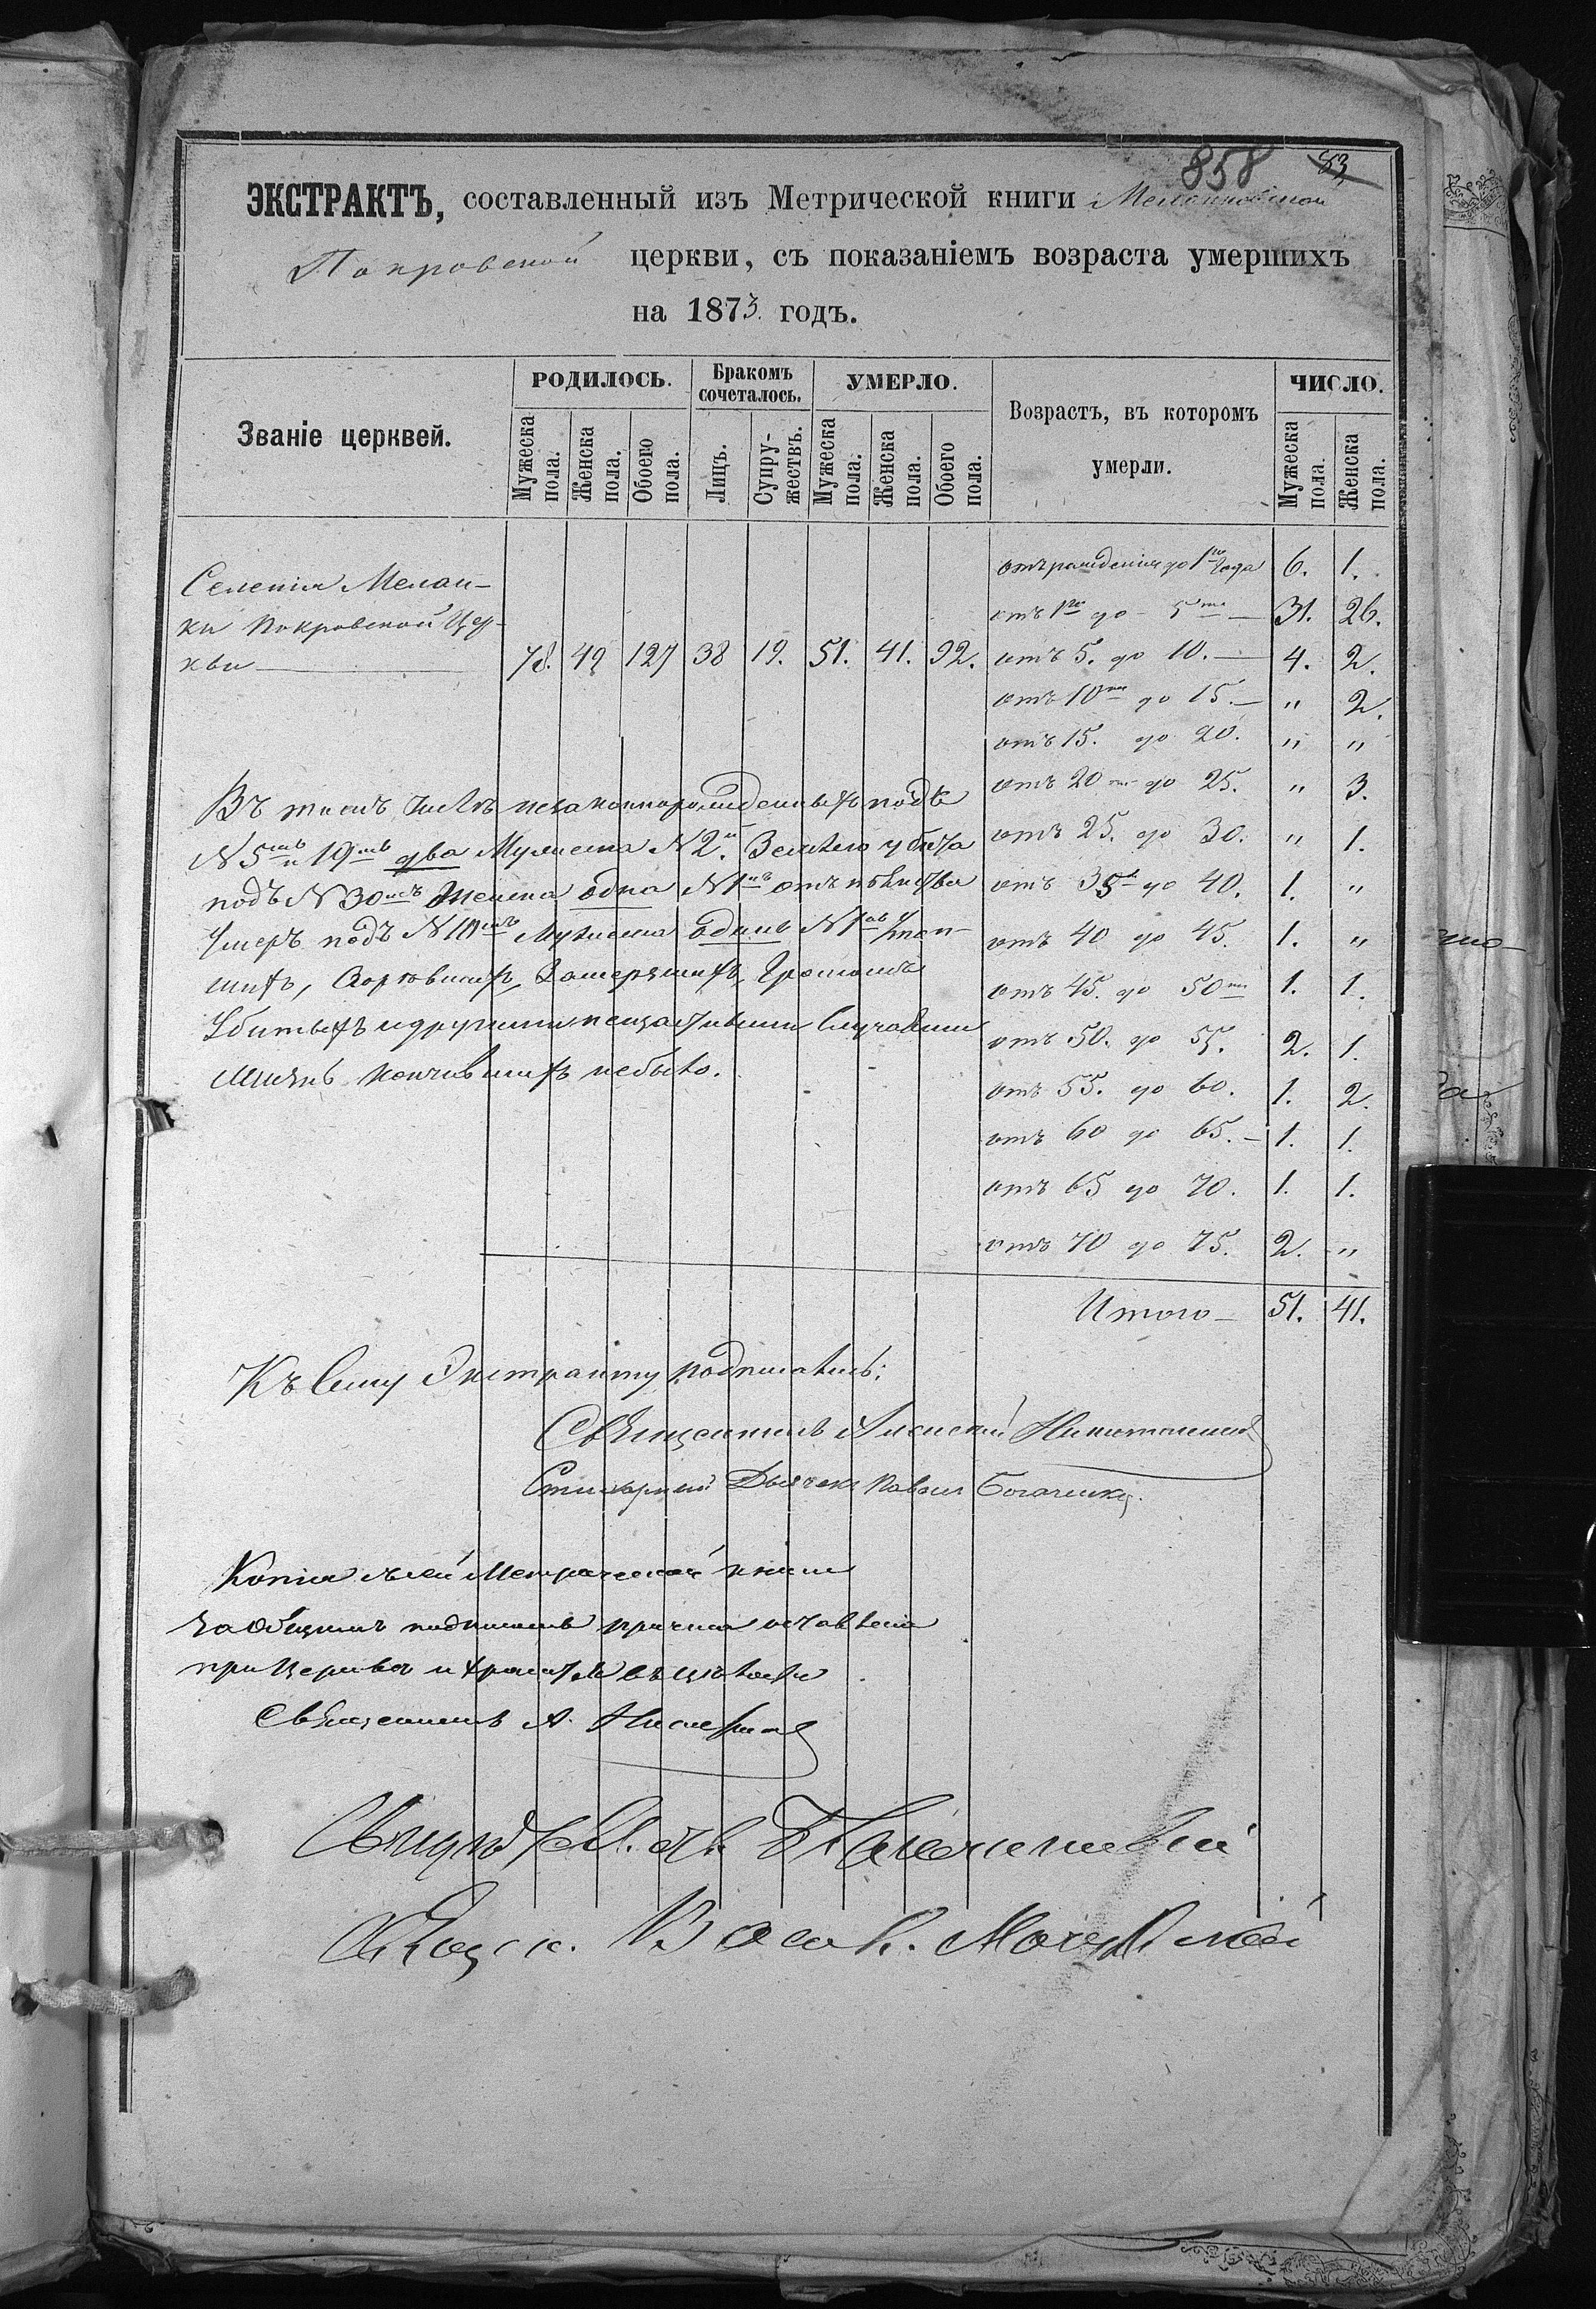 858 83
ЭКСТРАКТЪ, составленный изъ Метрической книги
Покровской церкви, съ показаніемъ возраста умершихъ
на 1873. годъ.
Званіе церквей.
РОДИЛОСЬ.
Мужеска пола.
Женска пола.
Обоего пола.
Бракомъ сочеталось.
Лицъ.
Супружествъ.
УМЕРЛО.
Мужеска пола.
Женска пола.
Обоего пола.
Возрастъ, въ которомъ
умерли.
ЧИСЛО.
Мужеска пола.
Женска пола.
Селенія Мелан-
ки Покровской Цер-
кви 78. 49 127 38 19. 51. 41. 92.
отъ рожденія до 1го года 6. 1.
отъ 1го до 5ти 31. 26.
отъ 5. до 10. 4. 2.
отъ 10ти до 15. " 2.
отъ 15. до 20. " "
отъ 20ти до 25. " 3.
отъ 25. до 30. " 1.
отъ 35 до 40. 1. "
отъ 40 до 45. 1. "
отъ 45. до 50ти 1. 1.
отъ 50. до 55. 2. 1.
отъ 55. до 60. 1. 2.
отъ 60 до 65. 1. 1.
отъ 65 до 70. 1. 1.
отъ 70 до 75. 2. "
Итого 51. 41.
Въ томъ числѣ незаконнорожденныхъ подъ
N 5мъ и 19мъ два Мужеска N 2.
подъ N 30мъ Женска одна N 1
Умеръ подъ N 10мъ Мужеска одинъ N 1 Утоп-
шихъ, Сгорѣвшихъ, Замерзшихъ, Громомъ
Убитыхъ и другими нещастными Случаями
Жизнь кончившихъ небыло.
Къ Сему Экстракту подписались:
Священникъ Алексій
Стихарный Дьячекъ Павелъ
Копія сей Метрической книги
за общимъ подписомъ причта оставлена
при Церкви и хранится въ цѣлости
Священникъ А.